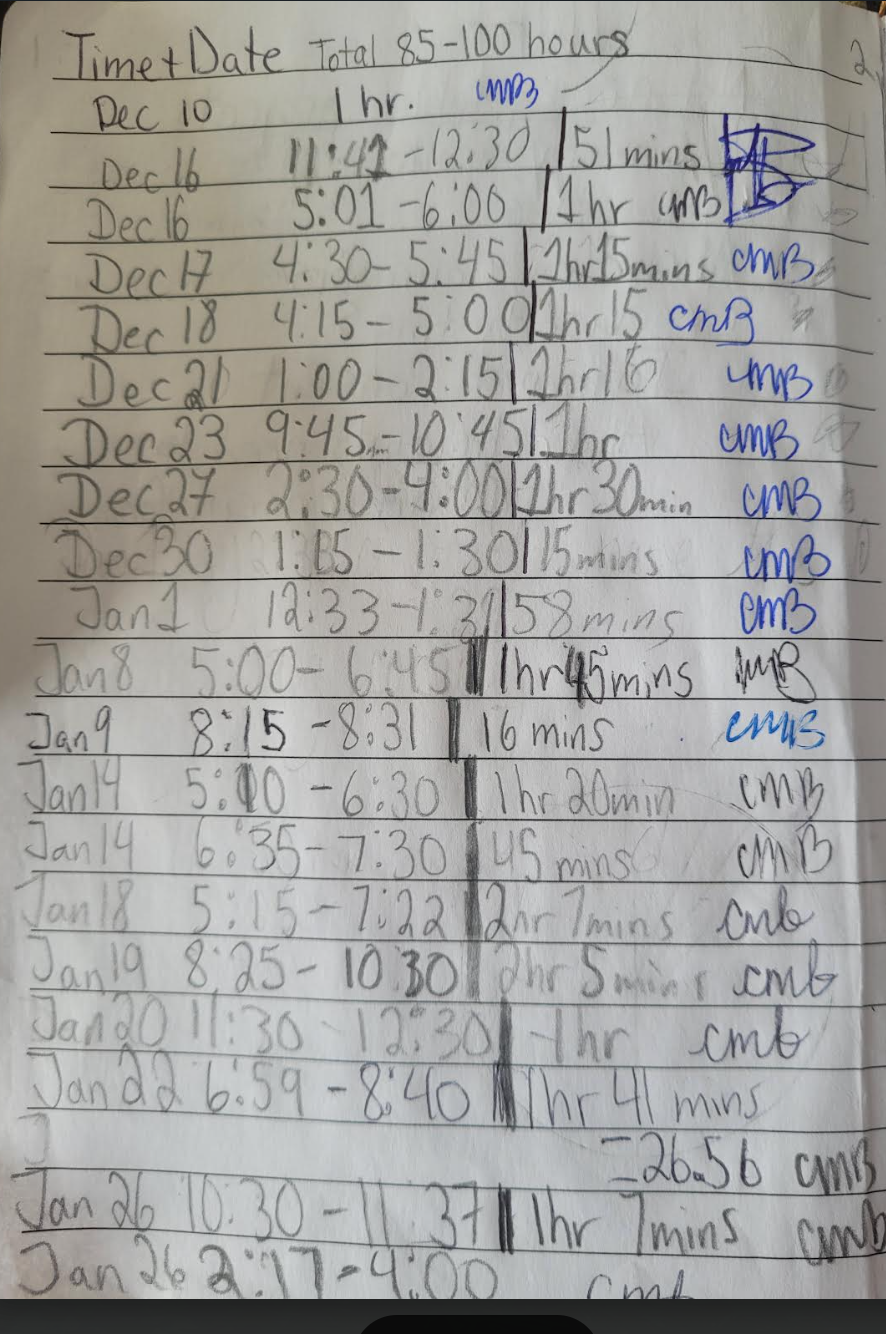 Time + Date Total 85-100 hours 2
Dec 10 1 hr. cmB
Dec 16 11:41 - 12:30 | 51 mins
Dec 16 5:01 - 6:00 | 1hr cmB
Dec 17 4:30 - 5:45 | 1hr15mins cmB
Dec 18 4:15 - 5:00 | 1hr15 cmB
Dec 21 1:00 - 2:15 | 1hr16 cmB
Dec 23 9:45 - 10:45 | 1hr cmB
Dec 27 2:30 - 4:00 | 1hr 30min cmB
Dec 30 1:15 - 1:30 | 15mins cmB
Jan 1 12:33 - 1:31 | 58 mins cmB
Jan 8 5:00 - 6:45 | 1hr 45mins cmB
Jan 9 8:15 - 8:31 | 16 mins cmB
Jan 14 5:10 - 6:30 | 1hr 20min cmB
Jan 14 6:35 - 7:30 | 45 mins cmB
Jan 18 5:15 - 7:22 | 2hr 7mins cmb
Jan 19 8:25 - 10:30 | 2hr 5 mins cmb
Jan 20 11:30 - 12:30 | -1hr cmb
Jan 22 6:59 - 8:40 | 1hr 41 mins
J =26.56 cmB
Jan 26 10:30 - 11:37 | 1hr 7mins cmb
Jan 26 2:17 - 4:00 cmb